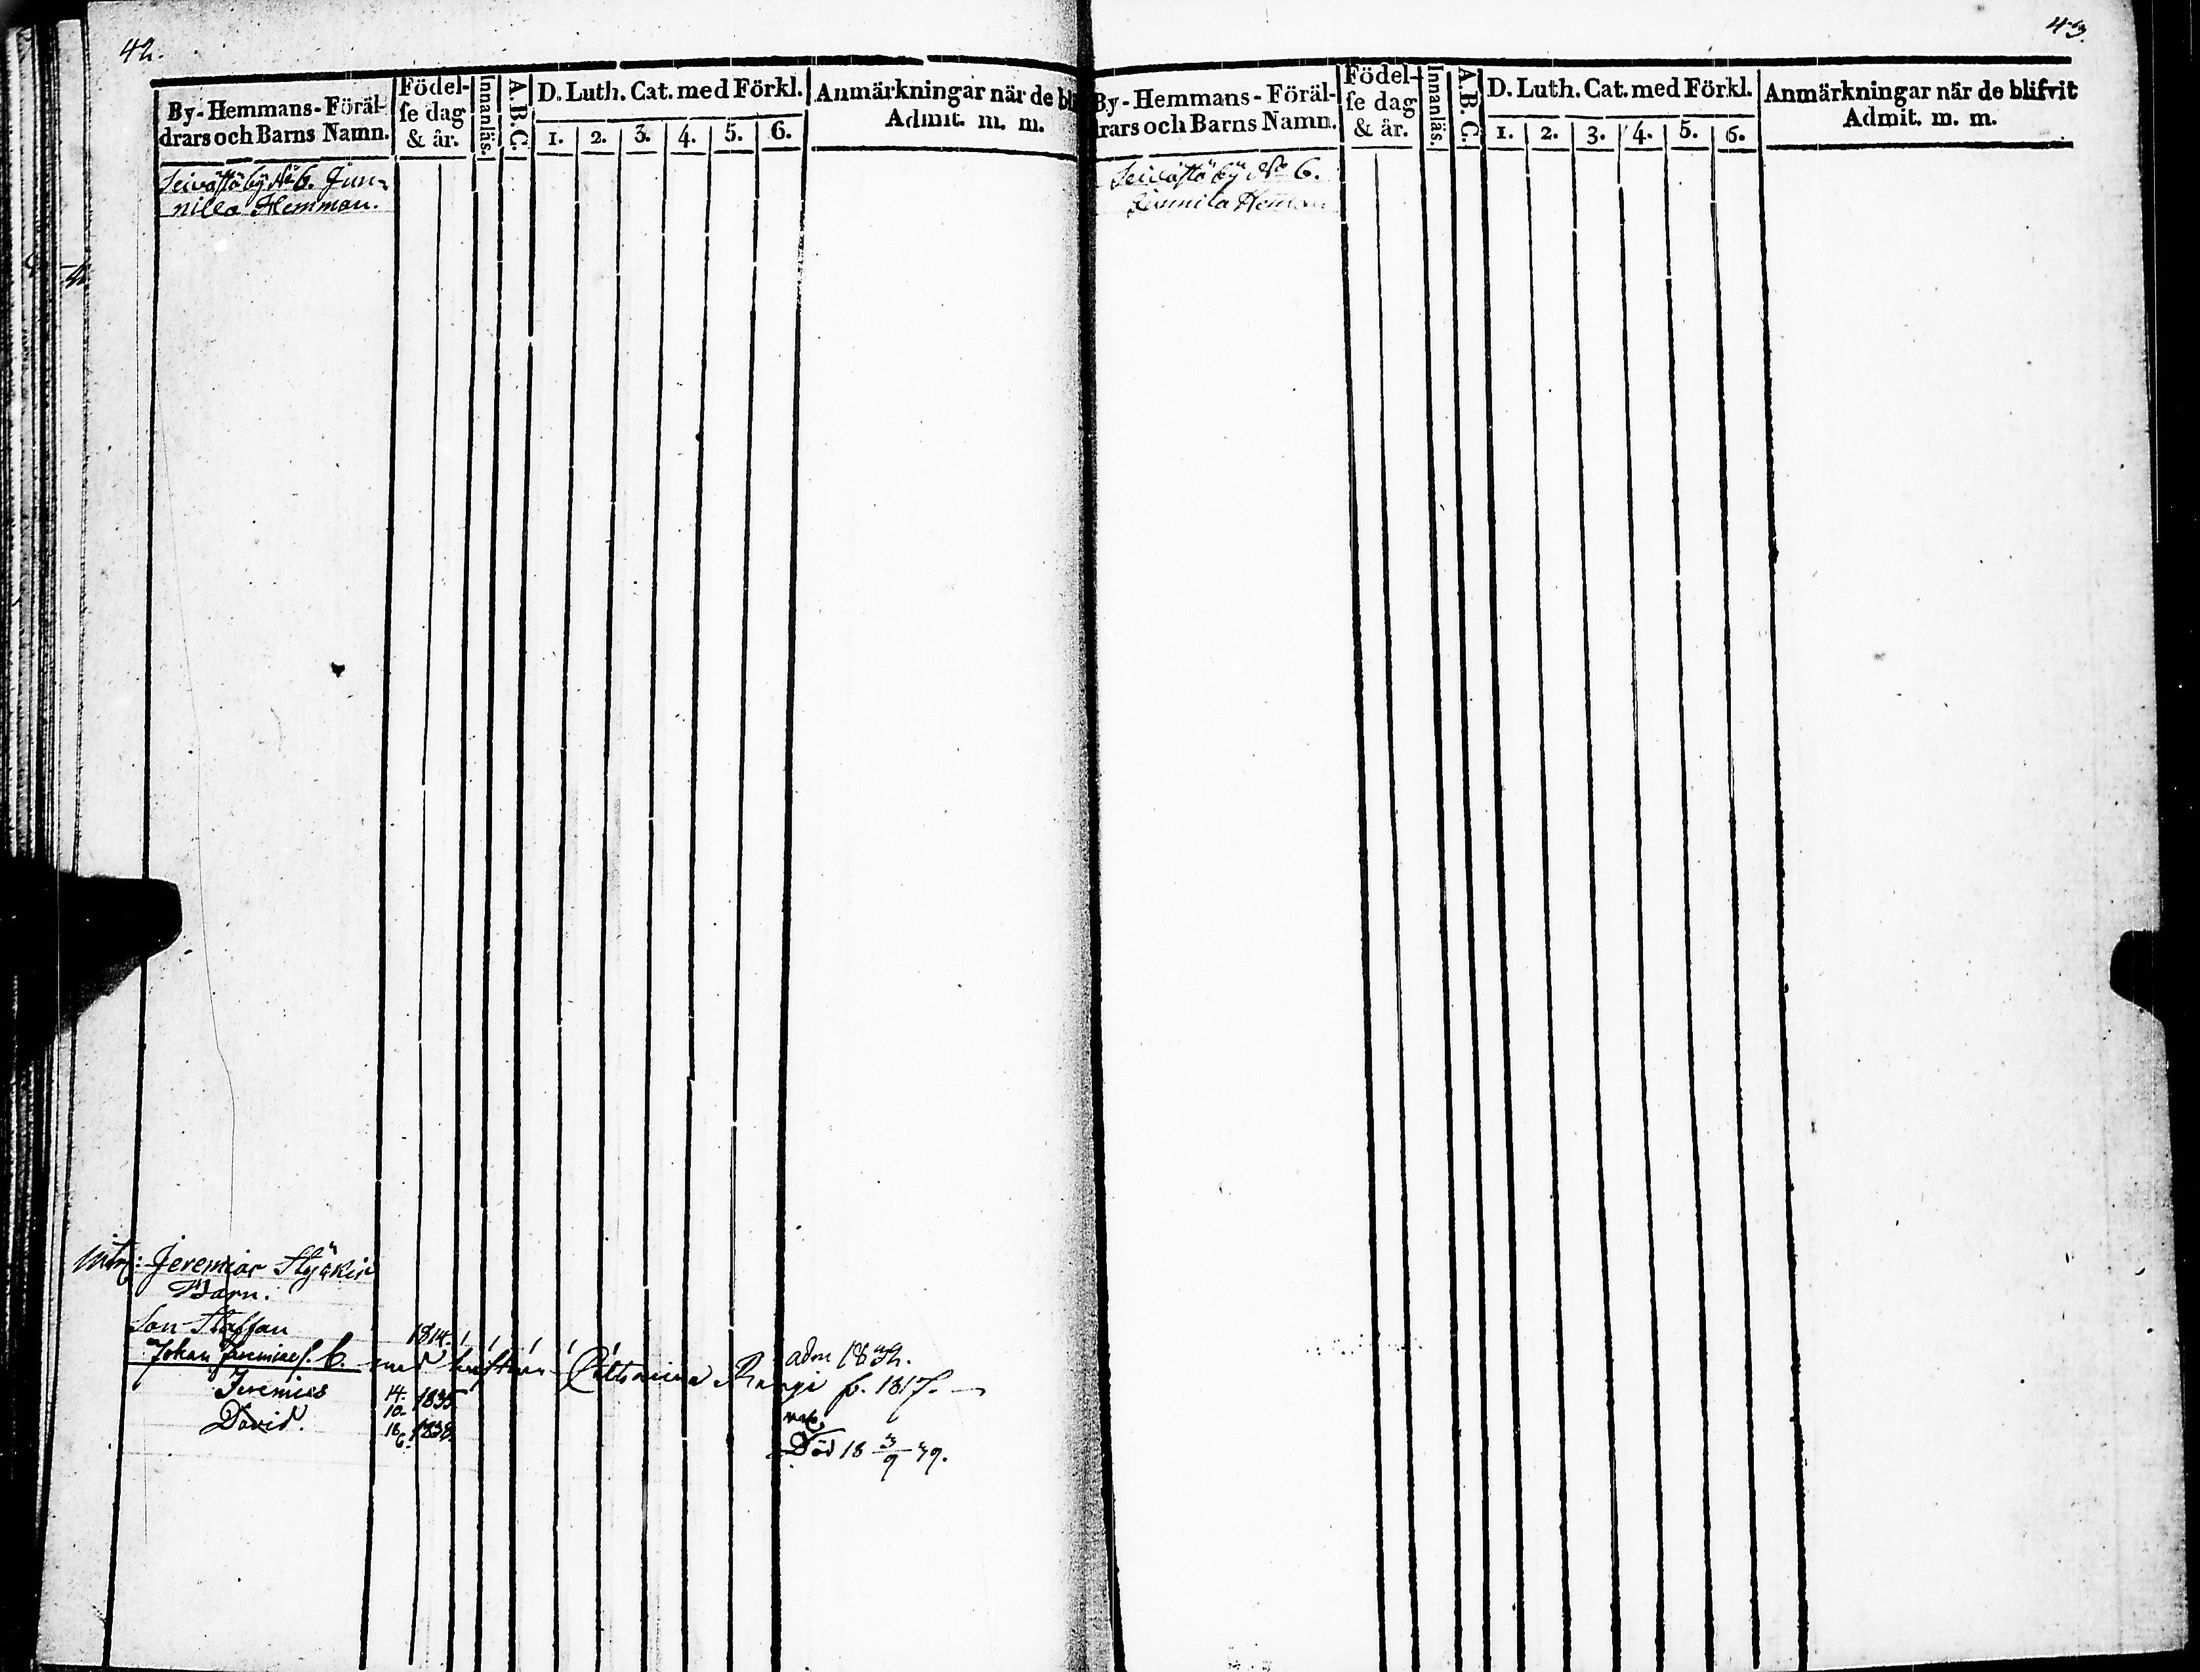 42.
By- Hemmans- Föräl-
drars och Barns Namn.
Födel-
se dag
& år.
Innanläs.
A.B.C.
D. Luth. Cat. med Förkl.
1. 2. 3. 4. 5. 6.
Anmärkningar när de bli
Admit. m. m.
Seivästö by No 6. Jun-
nilla Hemman.
Jeremias
Barn.
Son Staffan 1814.
adm 1832.
Johan Jeremiæs. b. med hustrun Catharina f. 1817.
Jeremias 14. 10. 1835
David. 18 6. 1838.
Död 18 3/9 39.
43.
By- Hemmans- Föräl-
drars och Barns Namn.
Födel-
se dag
& år.
Innanläs.
A.B.C.
D. Luth. Cat. med Förkl.
1. 2. 3. 4. 5. 6.
Anmärkningar när de blifvit
Admit. m. m.
Seivästö by No 6.
Junnila Hemman